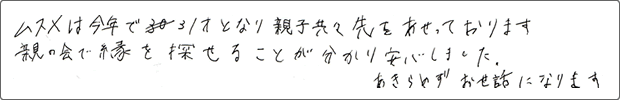 ムスメは今年で31才となり親子共々先をあせっております
親の会で縁を探せることが分かり安心しました.
あきらめずお世話になります